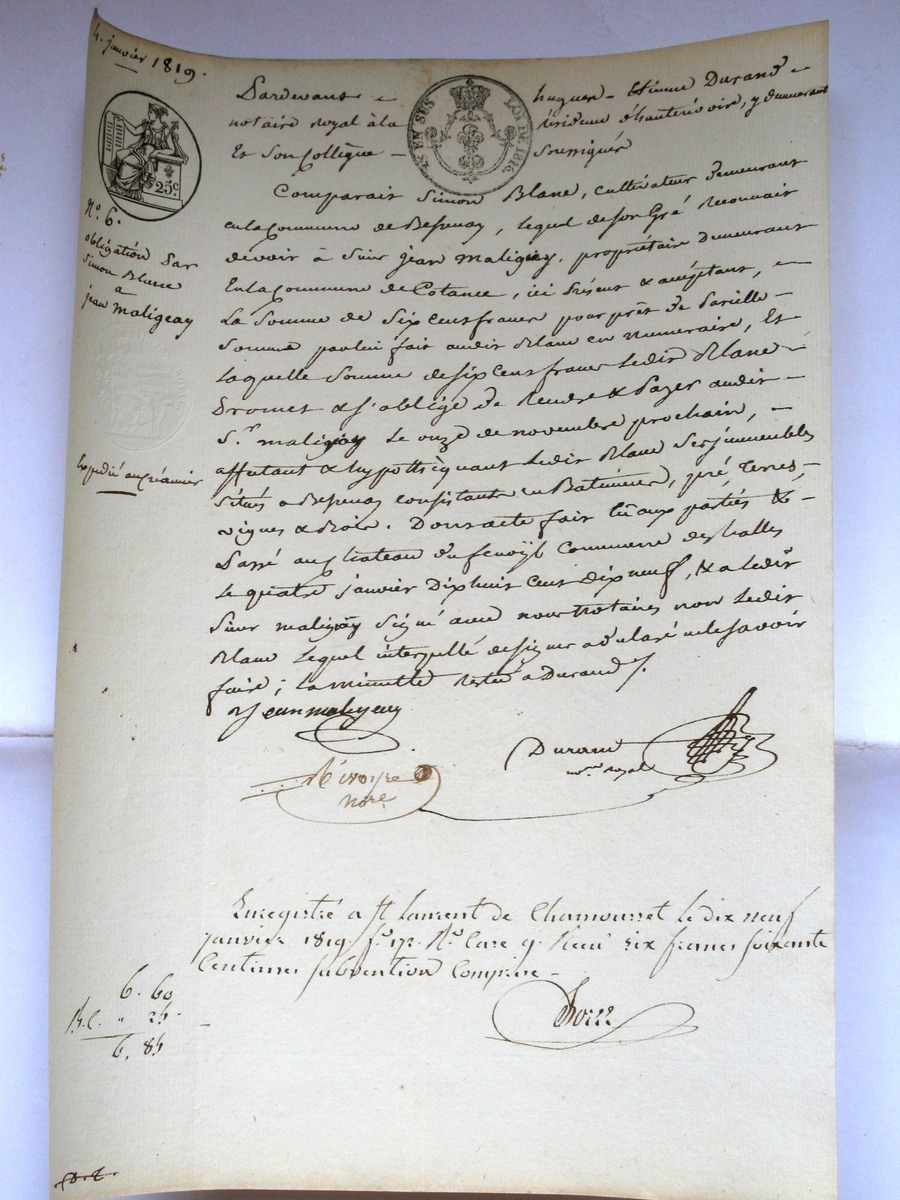 4. janvier 1819.
Pardevant hugues - Etienne Durand
notaire royal à la résidence d'hauterivoire, y demeurant
Et Son Collègue Soussignés
EN SUS LOI DE 1816.
25c
Comparait Simon Blanc, cultivateur demeurant
en la Commune de Bessenay, lequel de son Gré Reconnait
devoir à Sieur jean Maligeay, propriétaire demeurant
En la Commune de Cotance, ici présent & acceptant,
La Somme de Six Cent francs pour prêt de pareille
Somme par lui fait audit Blanc en numeraire, Et
laquelle Somme de six Cent francs ledit Blanc
promet & s'oblige de Rendre & payer audit
Sr. maligeay le onze de novembre prochain,
affectant & hypothéquant ledit Blanc Ses immeubles
Situés a Bessenay consistants en Batiments, pré, terres,
vignes & Bois. Dont acte fait lû aux parties &
passé au chateau du Commune des halles
le quatre janvier Dix huit Cent dix neuf, & a ledit
Sieur maligeay Signé avec nous Notaires non ledit
Blanc lequel interpellé de signer a déclaré ne le savoir
faire; la minutte Restée a Durand /.
Jean maligeay
Durand
nore. royal
nore
No. 6.
obligation par
Simon Blanc
a
jean Maligeay
Expedié au créancier
Enregistré a St. Laurent de Chamousset le dix neuf
janvier 1819. fo. 172. Ro. Case 9. Reçu six francs soixante
Centimes subvention Comprise -
6. 60
" 25
6, 85